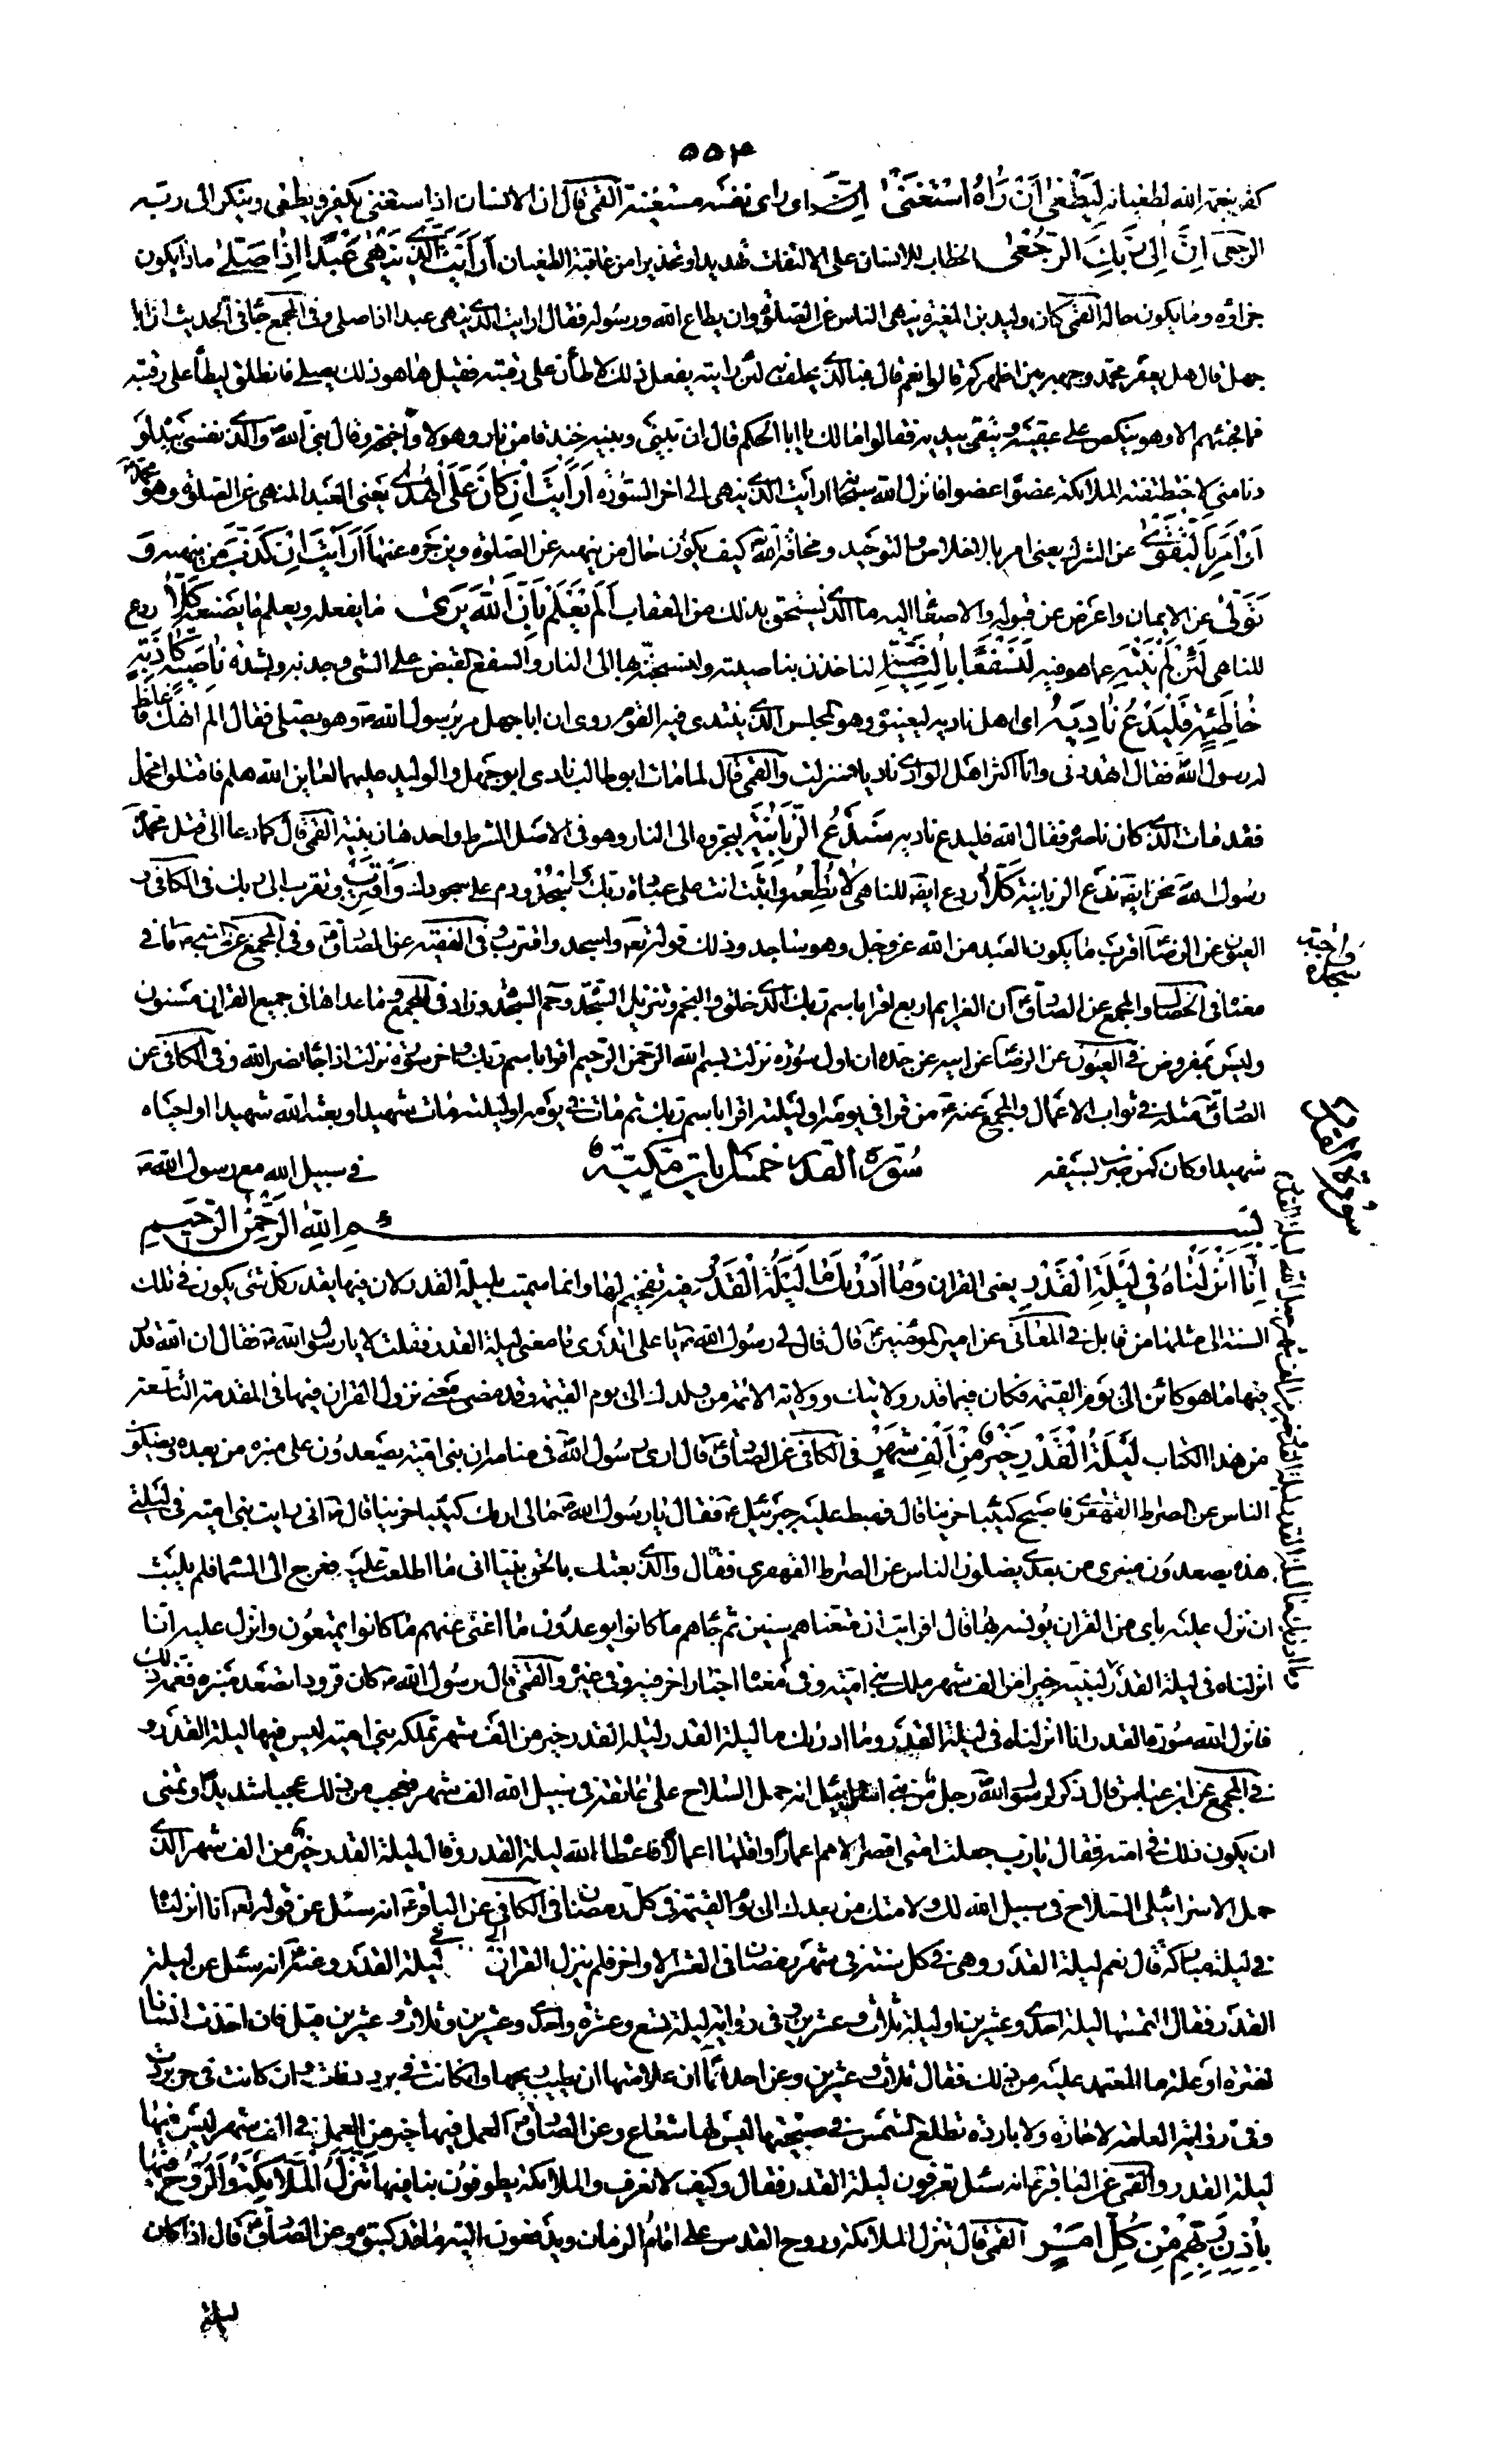 ٥٥٤
كفر بنعمة الله لطغيانه لَيَطْغىٰ اَنْ رَاٰهُ اسْتَغْنىٰ اى راى نفسه مستغنية القمّى قال ان الانسان اذا استغنى يكفر و يطغى و ينكر الى ربّه
الرجعى اِنَّ اِلىٰ رَبِّكَ الرُّجْعىٰ الخطاب للانسان على الالتفات تهديدا و تحذيرا من عاقبة الطغيان اَرَاَيْتَ الَّذى يَنْهىٰ عَبْدًا اِذٰا صَلّىٰ ماذا يكون
جزاؤه و ما يكون حاله القمّى كان وليد بن المغيرة ينهى الناس عن الصلوة و ان يطاع الله و رسوله فقال ارايت الذى ينهى عبدا اذا صلى و فى المجمع جاء فى الحديث ان ابا
جهل قال هل يعفّر محمّد وجهه بين اظهركم قالوا نعم قال فبالذى يحلف به لئن رايته يفعل ذلك لاطأن على رقبته فقيل ها هو ذلك يصلى فانطلق ليطأ على رقبته
فما فجئهم الا و هو ينكص على عقبيه و يتقى بيديه فقالوا مالك يا ابا الحكم قال ان بينى و بينه خندقا من نار و هولا و اجنحة و قال نبى الله و الذى نفسى بيده لو
دنا منى لاختطفته الملائكة عضوا عضوا فانزل الله سبحانه ارايت الذى ينهى الى اخر السّورة اَرَاَيْتَ اِنْ كٰانَ عَلَى الْهُدىٰ يعنى العبد المنهى عن الصلوة و هو محمّد
اَوْ اَمَرَ بِالتَّقْوىٰ عن الشرك يعنى امر بالاخلاص و التوحيد و مخافة الله كيف يكون حال من ينهيه عن الصلوة و يزجره عنها اَرَاَيْتَ اِنْ كَذَّبَ من ينهيه وَ
تَوَلّىٰ عن الايمان و اعرض عن قبوله و الاصغاء اليه ما الذى يستحق بذلك من العقاب اَلَمْ يَعْلَمْ بِاَنَّ اللّٰهَ يَرىٰ ما يفعله و يعلم ما يصنعه كَلّٰا ردع
للناهى لَئِنْ لَمْ يَنْتَهِ عما هو فيه لَنَسْفَعًا بِالنّٰاصِيَةِ لناخذن بناصيته و لنسحبنه بها الى النار و السفع القبض على الشى و جذبه بشدة نٰاصِيَةٍ كٰاذِبَةٍ
خٰاطِئَةٍ فَلْيَدْعُ نٰادِيَهُ اى اهل ناديه ليعينوه و هو المجلس الذى ينتدى فيه القوم روى ان ابا جهل مر برسول الله و هو يصلى فقال الم انهك فاغلظ
له رسول الله فقال اتهددنى و انا اكثر اهل الوادى ناديا فنزلت و القمّى قال لما مات ابو طالب نادى ابو جهل و الوليد عليهما لعاين الله هلم فاقتلوا محمدا
فقد مات الذى كان ناصره فقال الله فليدع ناديه سَنَدْعُ الزَّبٰانِيَةَ ليجروه الى النار و هو فى الاصل الشرط واحدها زبنية القمّى قال كما دعا الى قتل محمّد
رسول الله نحن ايضا ندع الزبانية كَلّٰا ردع ايضا للناهى لٰا تُطِعْهُ و اثبت انت على عبادة ربك وَ اسْجُدْ و دم على سجودك وَ اقْتَرِبْ و تقرب الى ربك فى الكافى و
العيون عن الرضا اقرب ما يكون العبد من الله عز و جل و هو ساجد و ذلك قوله تع و اسجد و اقترب و فى الفقيه عن الصادق و فى المجمع عن النبى ما فى
معناه فى الخصال و المجمع عن الصادق ان العزايم اربع اقرا باسم ربك الذى خلق و النجم و تنزيل السّجدة و حم السجدة و زاد فى المجمع و ما عداها فى جميع القران مسنون
و ليس بمفروض فى العيون عن الرضا عن ابيه عن جده ان اول سورة نزلت بسم الله الرحمن الرحيم اقرا باسم ربك و اخر سورة نزلت اذا جاء نصر الله و فى الكافى عن
الصادق مثله فى ثواب الاعمال و المجمع عنه من قرا فى يومه او ليلته اقرا باسم ربك ثم مات فى يومه او ليلته مات شهيدا و بعثه الله شهيدا او احياه
شهيدا و كان كمن ضرب بسيفه سُورة القدر خمس ايات مكيّة فى سبيل الله مع رسول الله
بِسْمِ اللّٰهِ الرَّحْمٰنِ الرَّحيمِ
اِنّٰا اَنْزَلْنٰاهُ فى لَيْلَةِ الْقَدْرِ يعنى القران وَ مٰا اَدْرٰيكَ مٰا لَيْلَةُ الْقَدْرِ فيه تفخيم لها و انما سميت بليلة القدر لان فيها يقدر كل شى يكون فى تلك
السنة الى مثلها من قابل فى المعانى عن امير المؤمنين قال قال لى رسول الله يا على اتدرى ما معنى ليلة القدر فقلت لا يا رسول الله فقال ان الله قدر
فيها ما هو كائن الى يوم القيمة فكان فيما قدر ولايتك و ولاية الائمة من ولدك الى يوم القيمة و قد مضى معنى نزول القران فيها فى المقدمة التاسعة
من هذا الكتاب لَيْلَةُ الْقَدْرِ خَيْرٌ مِنْ اَلْفِ شَهْرٍ فى الكافى عن الصادق قال ارى رسول الله فى منامه ان بنى امية يصعدون على منبره من بعده يضلون
الناس عن الصراط القهقرى فاصبح كئيبا حزينا قال فهبط عليه جبرئيل فقال يا رسول الله مالى اراك كئيبا حزينا قال انى رايت بنى امية فى ليلتى
هذه يصعدون منبرى من بعدى يضلون الناس عن الصراط القهقرى فقال و الذى بعثك بالحق نبيا انى ما اطلعت عليه فعرج الى السماء فلم يلبث
ان نزل عليه باى من القران يونسه بها قال افرايت ان متعناهم سنين ثم جاءهم ما كانوا يوعدون ما اغنى عنهم ما كانوا يمتعون و انزل عليه انا
انزلناه فى ليلة القدر لنبيه خيرا من الف شهر ملك بنى امية و فى معناه اخبار اخر فيه و فى غيره و القمّى قال راى رسول الله كان قرودا تصعد منبره فغمه ذلك
فانزل الله سورة القدر انا انزلناه فى ليلة القدر و ما ادريك ما ليلة القدر ليلة القدر خير من الف شهر تملكه بنى امية ليس فيها ليلة القدر و
فى المجمع عن ابن عباس قال ذكر لرسول الله رجل من بنى اسرائيل انه حمل السلاح على عاتقه فى سبيل الله الف شهر فعجب من ذلك عجبا شديدا و تمنى
ان يكون ذلك فى امته فقال يا رب جعلت امتى اقصر الامم اعمارا و اقلها اعمالا فاعطاه الله ليلة القدر و قال ليلة القدر خير من الف شهر الذى
حمل الاسرائيلى السلاح فى سبيل الله لك و لامتك من بعدك الى يوم القيمة فى كل رمضان فى الكافى عن الباقر انه سئل عن قوله تع انا انزلناه
فى ليلة مباركة قال نعم ليلة القدر و هى فى كل سنة فى شهر رمضان فى العشر الاواخر فلم ينزل القران الا فى ليلة القدر و عنه انه سئل عن ليلة
القدر فقال التمسها ليلة احدى و عشرين او ليلة ثلاث و عشرين و فى رواية ليلة تسع و عشرة و احدى و عشرين و ثلاث و عشرين قيل فان اخذت انسانا
الفترة او علة ما المعتمد عليه من ذلك فقال ثلاث و عشرين و عن احدهما ان علامتها ان يطيب ريحها و ان كانت فى برد دفئت و ان كانت فى حر بردت
و فى رواية العامة لا حارة و لا باردة تطلع الشمس فى صبيحتها ليس لها شعاع و عن الصادق العمل فيها خير من العمل فى الف شهر ليس فيها
ليلة القدر و القمّى عن الباقر انه سئل تعرفون ليلة القدر فقال و كيف لا نعرف و الملائكة يطوفون بنا فيها تَنَزَّلُ الْمَلٰائِكَةُ وَ الرُّوحُ فيهٰا
بِاِذْنِ رَبِّهِمْ مِنْ كُلِّ اَمْرٍ القمّى قال تنزل الملائكة و روح القدس على امام الزمان و يدفعون اليه ما قد كتبوه و عن الصادق قال اذا كان
ليلة
سجدة
سورة القدر